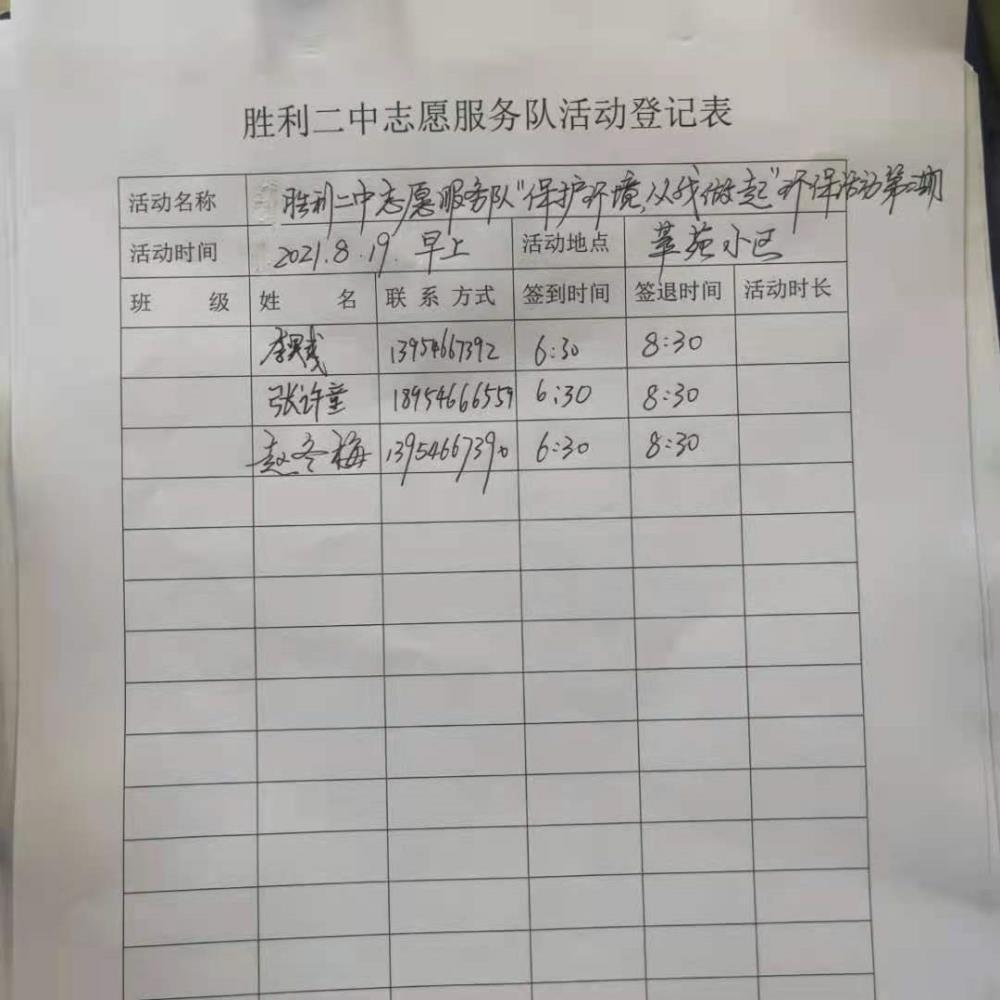 胜利二中志愿服务队活动登记表
活动名称 胜利二中志愿服务队“保护环境,从我做起”环保活动第二期
活动时间 2021.8.19. 早上 活动地点 苑小区
班 级 姓 名 联系方式 签到时间 签退时间 活动时长
李 13954667392 6:30 8:30
张许童 18954666559 6:30 8:30
赵冬梅 1395466739 6:30 8:30